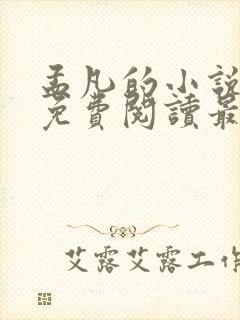 孟凡的小說
免費閱讀最
艾露艾露工作